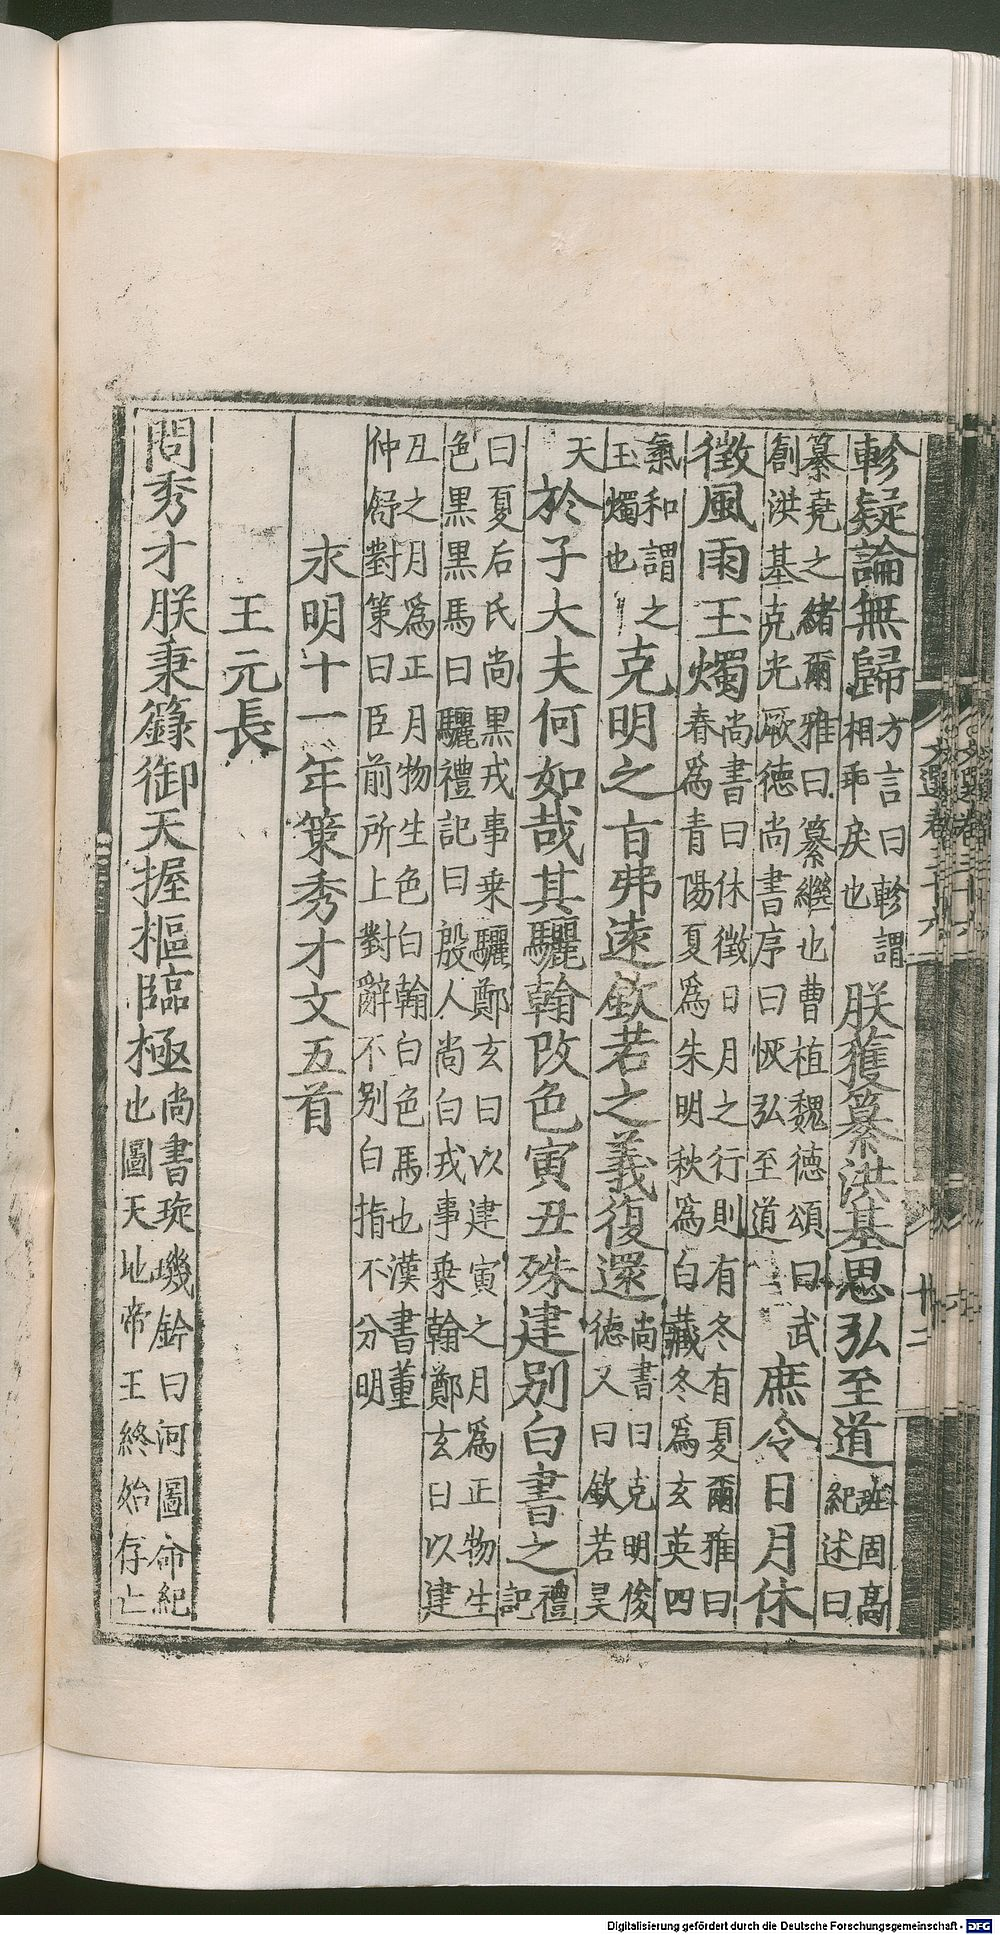 軫疑論無歸方言曰軫謂相乖戾也朕獲纂洪基思弘至道班固高紀述曰
纂堯之緒爾雅曰纂繼也曹植魏德頌曰武創洪基克光厥德尚書序曰恢弘至道庶令日月休
徵風雨玉燭尚書曰休徵日月之行則有冬有夏爾雅曰春爲青陽夏爲朱明秋爲白藏冬爲玄英四
氣和謂之玉燭也克明之旨弗遠欽若之義復還尚書曰克明俊德又曰欽若昊
天於子大夫何如哉其驪翰改色寅丑殊建別白書之禮記
曰夏后氏尚黑戎事乘驪鄭玄曰以建寅之月爲正物生色黑黑馬曰驪禮記曰殷人尚白戎事乘翰鄭玄曰以建
丑之月爲正月物生色白翰白色馬也漢書董仲舒對策曰臣前所上對辭不別白指不分明
永明十一年策秀才文五首
王元長
問秀才朕秉籙御天握樞臨極尚書琁璣鈐曰河圖命紀也圖天地帝王終始存亡
文選卷三十六
十二
Digitalisierung gefördert durch die Deutsche Forschungsgemeinschaft - DFG